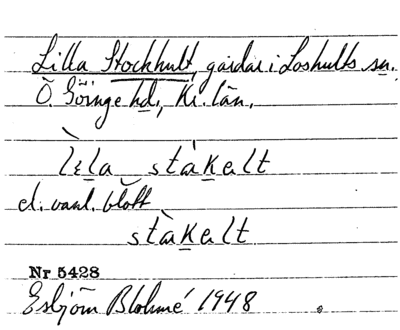 Lilla Stockhult, gårdar i Loshults sn.
Ö. Göinge hd., Kr. län.
lɛla stakalt
el. vanl. blott
stakalt
Nr 5428
Esbjörn Blohmé 1948